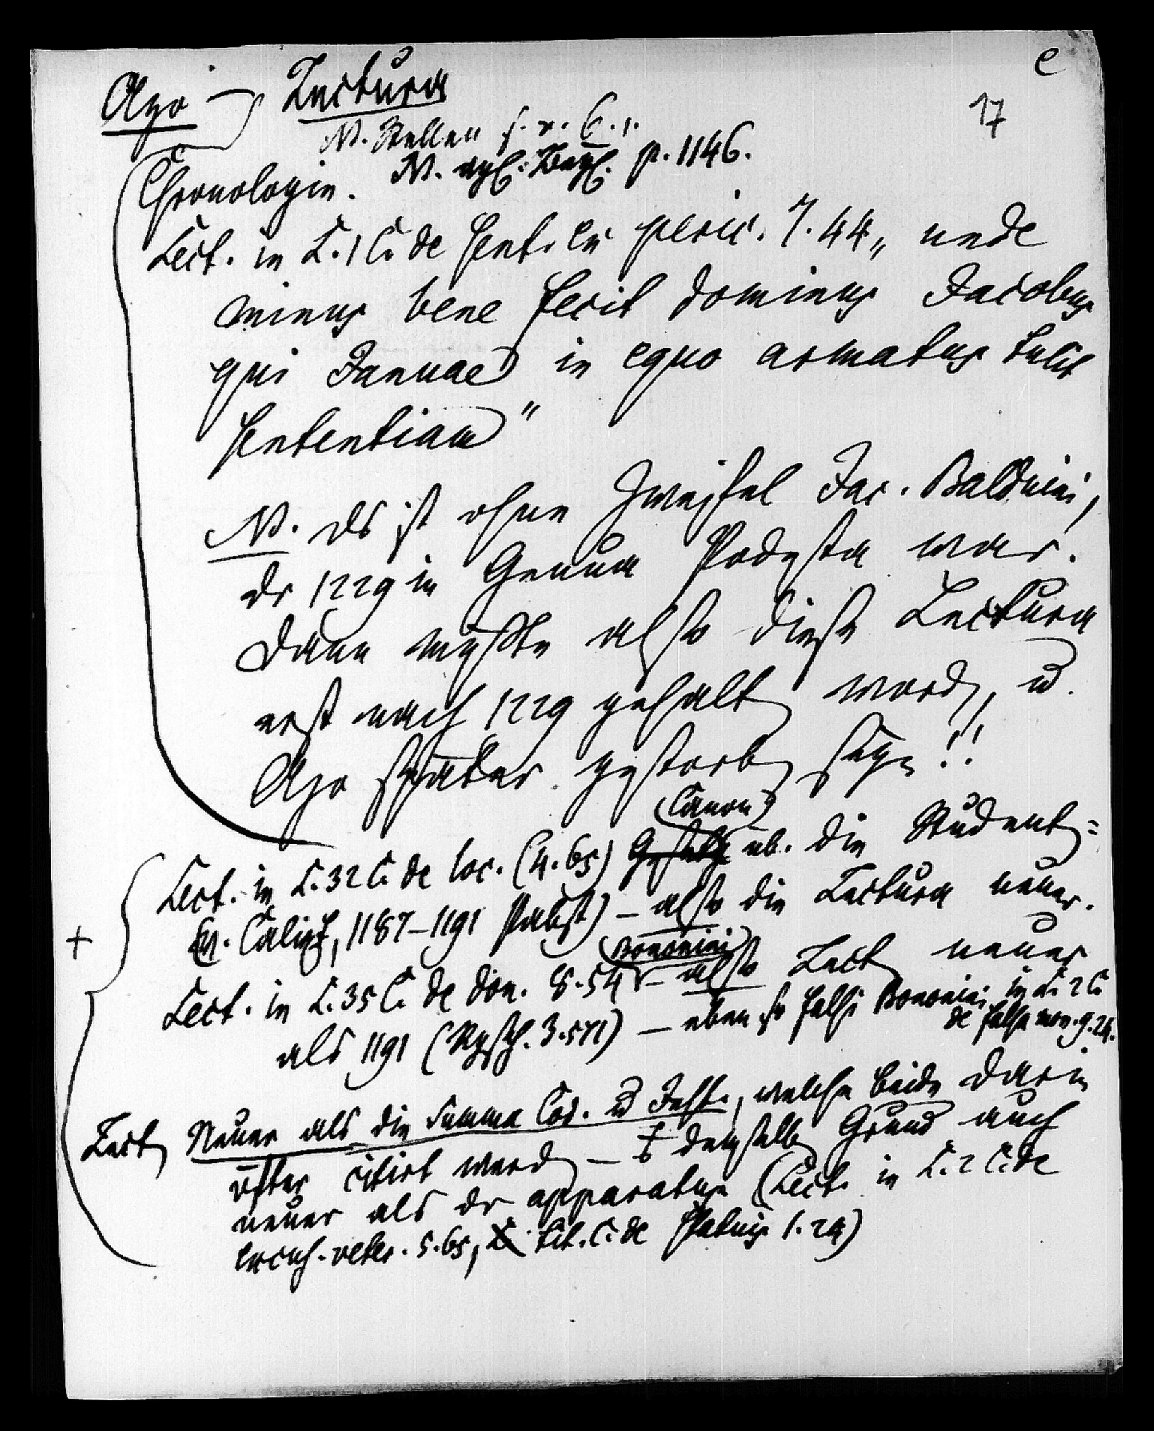 e
17
Azo – Lectura
N. Stellen s. v. 6. 1.
Chronologie. N. vgl. p. 1146.
Lect. in L. 1 C. de sent. ex peric. 7. 44 „ unde
minus bene fecit dominus Jacobus
qui Januae in equo armatus tulit
sententiam"
N. ds ist ohne Zweifel Jac. Balduini,
dr 1229 in Genua Podesta war.
Dann müßte also diese Lectura
erst nach 1229 gehalt word, u.
Azo später gestorb seyn!!
Lect. in L. 32 C. de loc. (4. 65) Gesetz (Canon) üb. die Student=
Calixt, 1187–1191 Pabst) – also die Lectura neuer.
Lect. in L. 35 C. de don. 8. 54 (Bononini) – also Lect neuer
als 1191 (Rgsch. 3. 571) – eben so falsi Bononini in L. 2 C
de falsa mon. 9. 24.
Lect Neuer als die Summa Cod. u Inst., welche beide darin
öfter citirt werd – + demselb Grund auch
neuer als dr apparatus (Lect. in L. 2 C. de
veter. 5. 65, tit. C. de Statuis 1. 24)